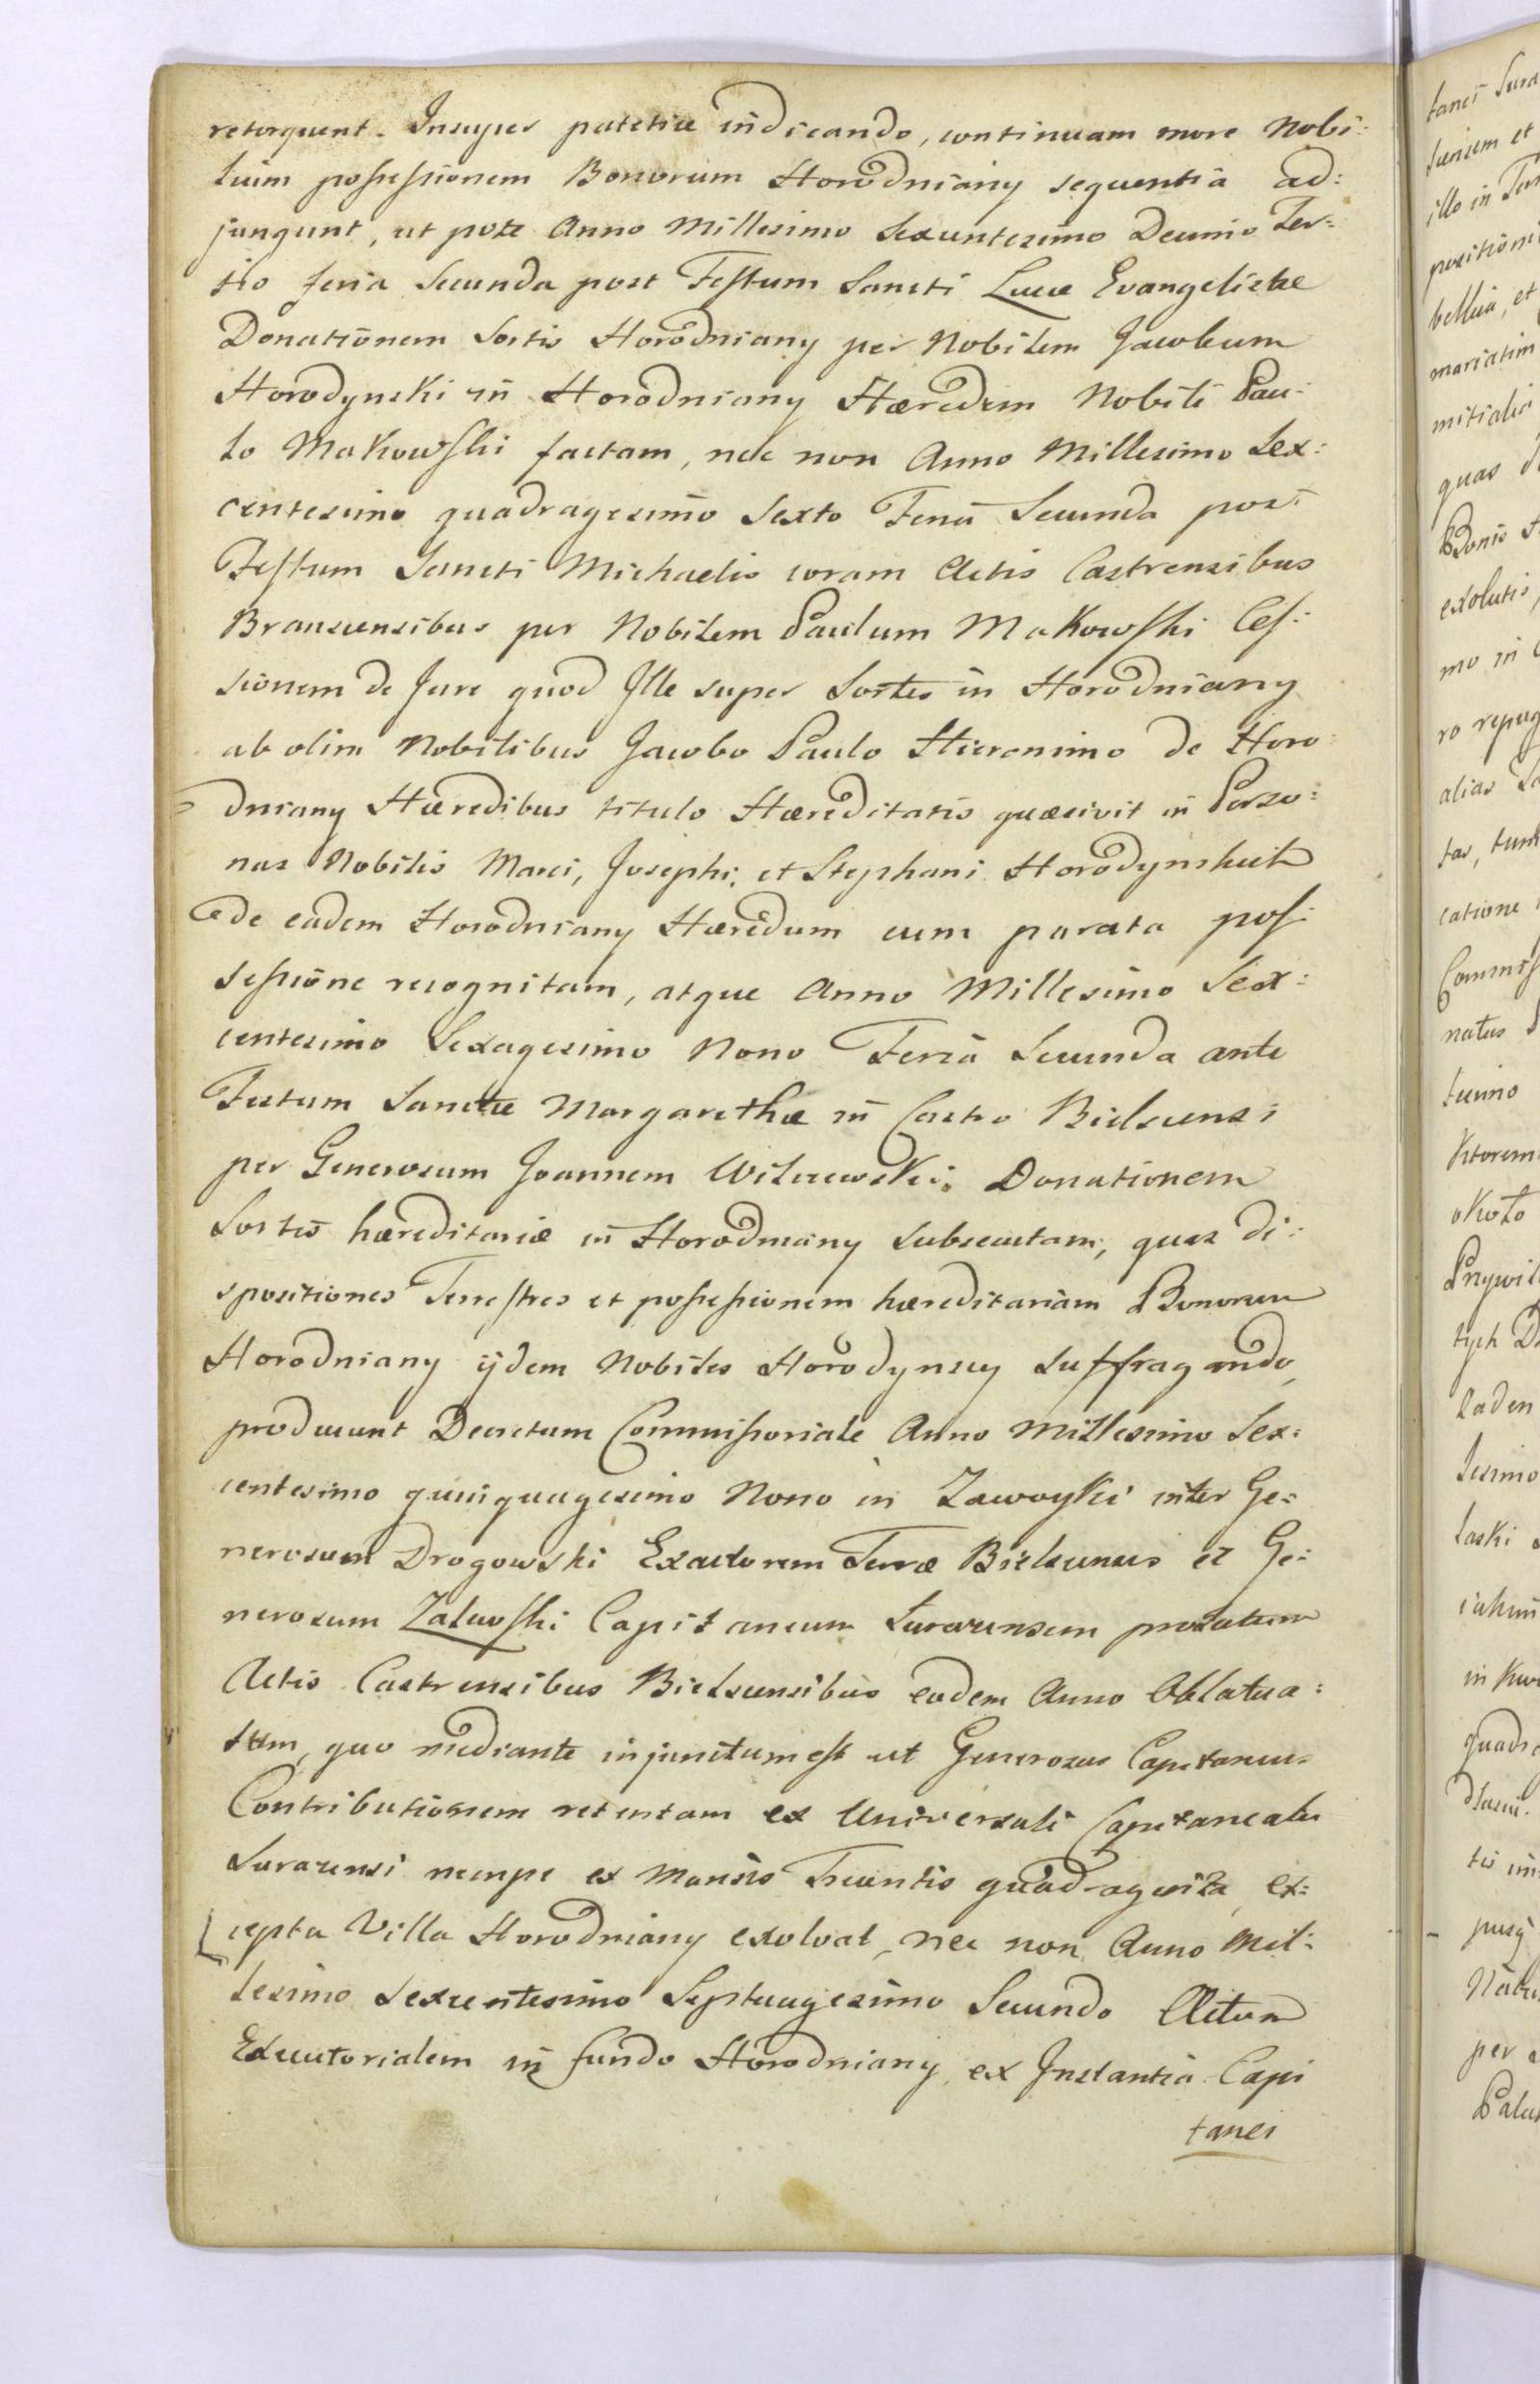 retorquent. Insuper patetice indicando, continuam more Nobi:
lium possessionem Bonorum Horodniany sequentia ad:
jungunt, ut pote Anno Millesimo Sexcentesimo Decimo Ter:
tio feria Secunda post Festum Sancti Lucæ Evangelistæ
Donationem Sortis Horodniany per Nobilem Jacobum
Horodynski in Horodniany Hæredem Nobili Pau:
lo Makowski factam, nec non Anno Millesimo Sex:
centesimo quadragesimo Sexto Feria Secunda post
Festum Sancti Michaelis coram Actis Castrensibus
Branscensibus per Nobilem Paulum Makowski Ces:
sionem de Jure quod Ille super Sortes in Horodniany
ab olim Nobilibus Jacobo Paulo Hieronimo de Horo
dniany Hæredibus titulo Hæreditatis quæsivit in Perso:
nas Nobilis Marci, Josephi, et Stephani Horodynskich
de eadem Horodniany Hæredum cum parata pos:
sessione recognitam, atque Anno Millesimo Sex:
centesimo Sexagesimo Nono Feria Secunda ante
Festum Sanctæ Margarethæ in Castro Bielscensi
per Generosum Joannem Wilczewski Donationem
Sortis hæreditariæ in Horodniany subsecutam, quas di:
spositiones Terrestres et possessionem hæreditariam Bonorum
Horodniany ijdem Nobiles Horodynscy suffragando,
producunt Decretum Commissoriale Anno Millesimo Sex:
centesimo quinquagesimo Nono in Zawoyki inter Ge:
nerosum Drogowski Exactorem Terræ Bielscensis et Ge:
nerosum Zalewski Capitaneum Surazensem prolatum
Actis Castrensibus Bielscensibus eodem Anno Oblatua:
tum, quo mediante injunctum est ut Generosus Capitaneus
Contributionem retentam ex Universali Capitaneatu
Surazensi nempe ex Mansis Trecentis quadraginta, ex:
cepta Villa Horodniany exolvat, nec non Anno Mil:
lesimo Sexcentesimo Septuagesimo Secundo Actum
Executorialem in fundo Horodniany, ex Instantia Capi
tanei